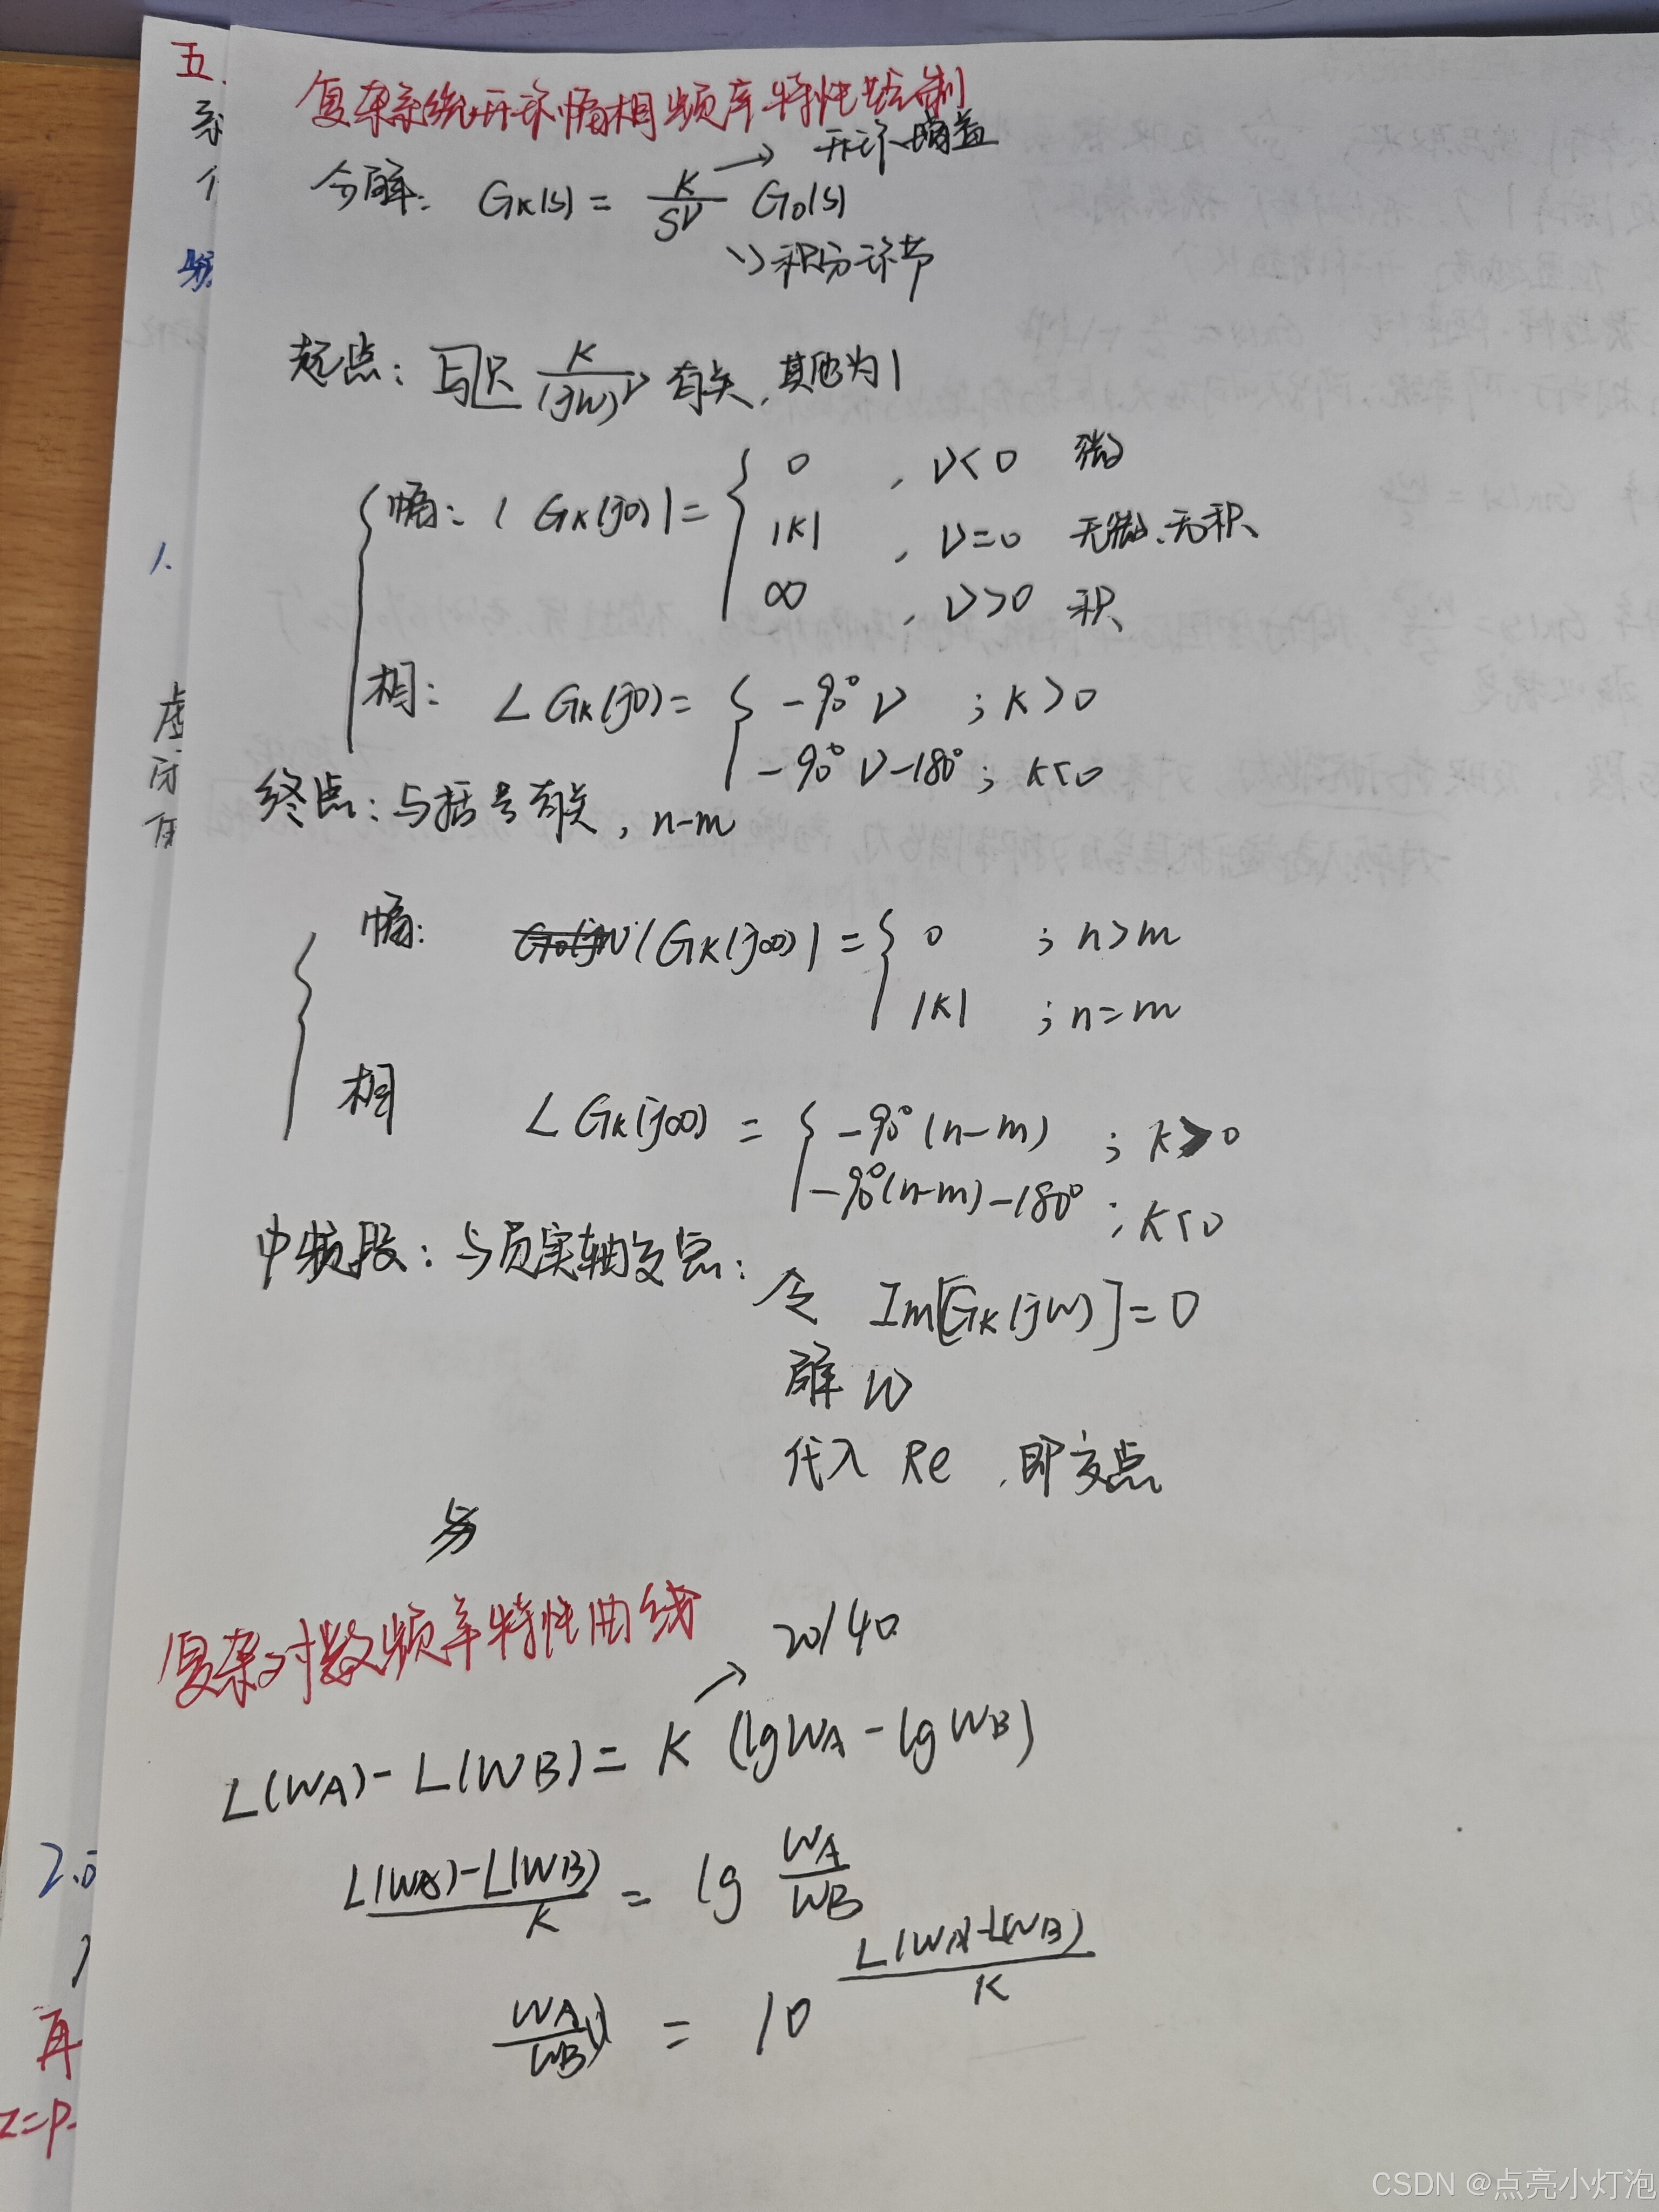 五.
复杂系统开环幅相频率特性绘制
开环增益
分解: GK(s) = K/S^ν G0(s)
↘积分环节
起点: 与K/(jω)^ν有关,其他为1
幅: |GK(j0)| = { 0 , ν<0 微
|K| , ν=0 无微、无积
∞ , ν>0 积
相: ∠GK(j0) = { -90°ν ; K>0
-90°ν-180° ; K<0
终点: 与括号有关, n-m
幅: |GK(j∞)| = { 0 ; n>m
|K| ; n=m
相 ∠GK(j∞) = { -90°(n-m) ; K>0
-90°(n-m)-180° ; K<0
中频段: 与负实轴交点:
令 Im[GK(jω)]=0
解 ω
代入 Re , 即交点
与
复杂对数频率特性曲线
20/40
L(ωA)-L(ωB) = K (lgωA-lgωB)
L(ωA)-L(ωB)/K = lg ωA/ωB
ωA/ωB = 10^(L(ωA)-L(ωB)/K)
1.
2.
再
Z=P-
CSDN @点亮小灯泡